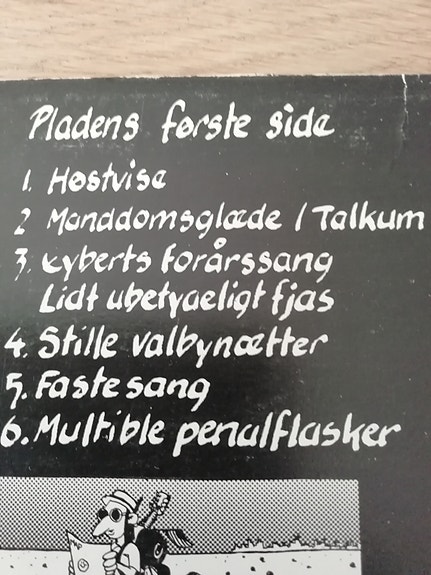 Pladens første side
1. Høstvise
2 Manddomsglæde / Talkum
3. Eyberts forårssang
Lidt ubetydeligt fjas
4. Stille valbynætter
5. Fastesang
6. Multible penalflasker